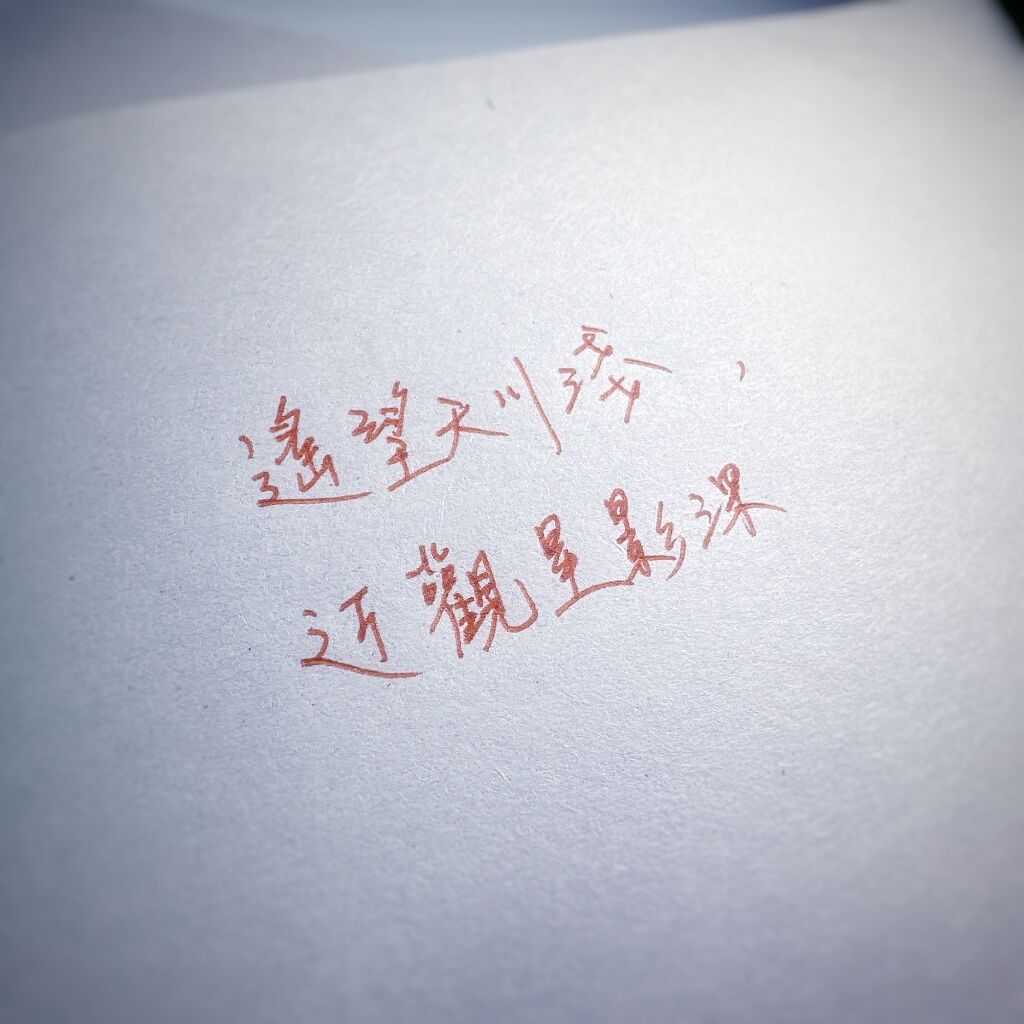 遙望天川漻，
近觀星影淉